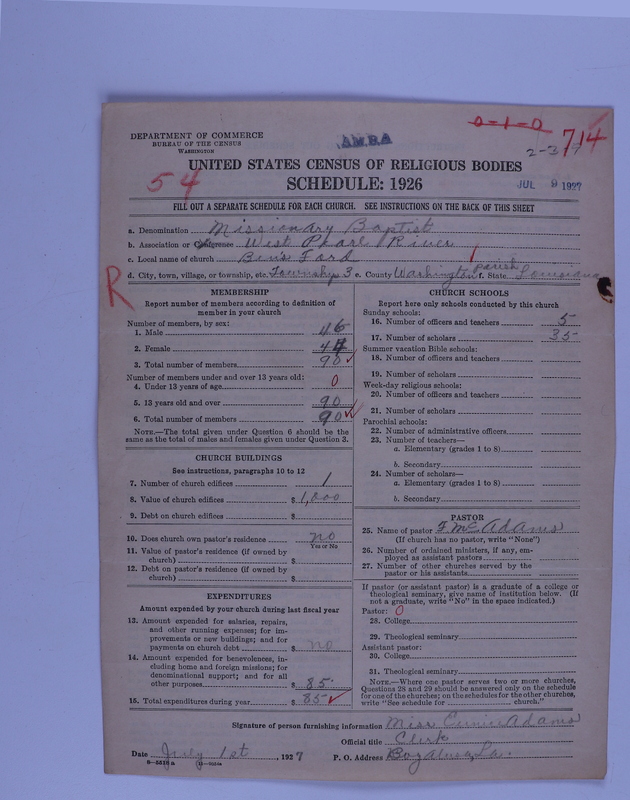 DEPARTMENT OF COMMERCE
BUREAU OF THE CENSUS
WASHINGTON
A.M.B.A
0-1-0
714
UNITED STATES CENSUS OF RELIGIOUS BODIES
54
SCHEDULE: 1926
JUL 9 1927
FILL OUT A SEPARATE SCHEDULE FOR EACH CHURCH. SEE INSTRUCTIONS ON THE BACK OF THIS SHEET
a. Denomination Missionary Baptist
b. Association or Conference West Pearl River
c. Local name of church Ben's Ford
d. City, town, village, or township, etc. Township 3 e. County Washington parish f. State Louisiana
R
MEMBERSHIP
Report number of members according to definition of
member in your church
Number of members, by sex:
1. Male 46
2. Female 44
3. Total number of members 90
Number of members under and over 13 years old:
4. Under 13 years of age 0
5. 13 years old and over 90
6. Total number of members 90
NOTE.—The total given under Question 6 should be the
same as the total of males and females given under Question 3.
CHURCH BUILDINGS
See instructions, paragraphs 10 to 12
7. Number of church edifices 1
8. Value of church edifices $ 1,000
9. Debt on church edifices $
10. Does church own pastor's residence no
Yes or No
11. Value of pastor's residence (if owned by
church) $
12. Debt on pastor's residence (if owned by
church) $
EXPENDITURES
Amount expended by your church during last fiscal year
13. Amount expended for salaries, repairs,
and other running expenses; for im-
provements or new buildings; and for
payments on church debt $ no
14. Amount expended for benevolences, in-
cluding home and foreign missions; for
denominational support; and for all
other purposes $ 85
15. Total expenditures during year $ 85
CHURCH SCHOOLS
Report here only schools conducted by this church
Sunday schools:
16. Number of officers and teachers 5
17. Number of scholars 35
Summer vacation Bible schools:
18. Number of officers and teachers
19. Number of scholars
Week-day religious schools:
20. Number of officers and teachers
21. Number of scholars
Parochial schools:
22. Number of administrative officers
23. Number of teachers—
a. Elementary (grades 1 to 8)
b. Secondary
24. Number of scholars—
a. Elementary (grades 1 to 8)
b. Secondary
PASTOR
25. Name of pastor F McAdams
(If church has no pastor, write "None")
26. Number of ordained ministers, if any, em-
ployed as assistant pastors
27. Number of other churches served by the
pastor or his assistants
If pastor (or assistant pastor) is a graduate of a college or
theological seminary, give name of institution below. (If
not a graduate, write "No" in the space indicated.)
Pastor: 0
28. College
29. Theological seminary
Assistant pastor:
30. College
31. Theological seminary
NOTE.—Where one pastor serves two or more churches,
Questions 28 and 29 should be answered only on the schedule
for one of the churches; on the schedules for the other churches,
write "See schedule for church."
Signature of person furnishing information Miss Eunice Adams
Official title Clerk
Date July 1st, 1927 P. O. Address Bogalusa, La.